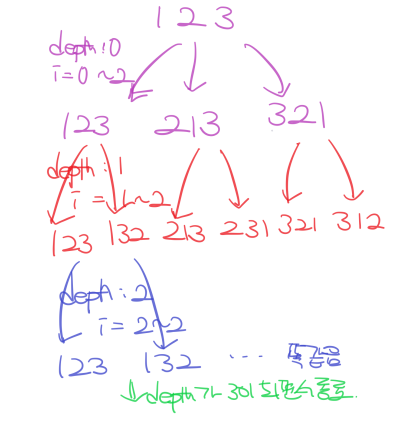 1 2 3
deph : 0
i = 0 ~ 2
123 213 321
deph : 1
i = 1 ~ 2
123 132 213 231 321 312
deph : 2
i = 2 ~ 2
123 132 ... 똑같음
depth가 3이 되면 종료